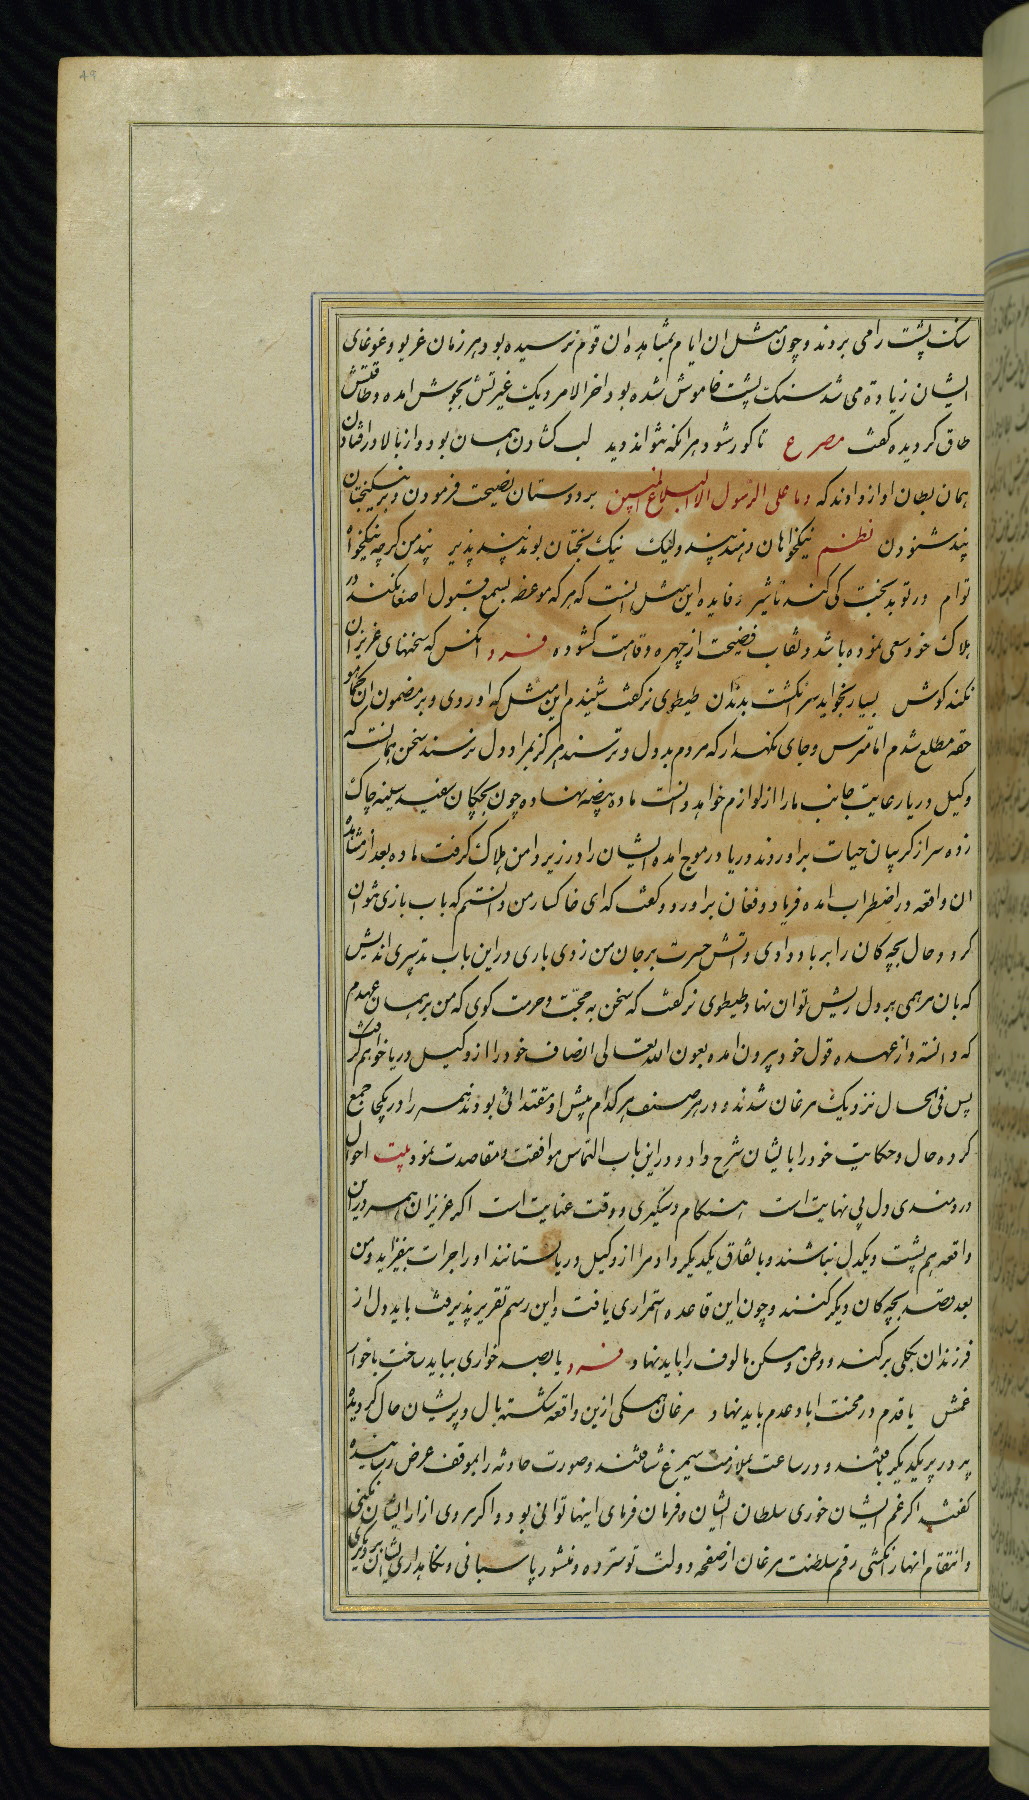 سنک پشت را می بردند و چون مثل ان ایام بمشاهده ان قوم نرسیده بود هر زمان غریو و غوغای
ایشان زیادة می شد سنک پشت خاموش شده بود اخر الامر دیک غیرتش بجوش امده و طاقتش
طاق کردیده کفت مصرع تا کور شود هر انکه نتواند دید لب کشادن همان بود و از بالا در افتادن
همان بطان اواز دادند که و ما علی الرسول الا البلاغ المبین بر دوستان نصیحت فرمودن و بر نیکبختان
پند شنودن نظم نیکخواهان دهند پند ولیک نیک بختان بوند پند پذیر پند من کرچه نیکخواه
توام در تو بدبخت کی کند تاثیر و فایده این مثل انست که هر که موعظه بسمع قبول اصغا نکند در
هلاک خود سعی نموده باشد و نقاب فضیحت از چهره وقاحت کشوده فرد انکس که سخنهای عزیزان
نکند کوش بسیار بخواید سر انکشت بدندان طیطوی نر کفت شنیدم این مثل که اوردی و بر مضمون ان کماهو
حقه مطلع شدم اما مترس و جای نکهدار که مردم بد دل و ترسنده هرکز بمراد دل نرسند سخن همانست که
وکیل دریا رعایت جانب ما را از لوازم خواهد دانست ماده بیضه نهاده چون بچکان بیضه سینه چاک
زده سر از کریبان حیات براوردند دریا در موج امده ایشان را در زیر دامن هلاک کرفت ماده بعد از مشاهده
ان واقعه در اضطراب امده فریاد و فغان براورد و کفت که ای خاکسار من دانستم که باب بازی نتوان
کرد و حال بچه کان را بر باد دادی و اتش حسرت بر جان من زدی باری در این باب تدبیری اندیش
که بان مرهمی بر دل ریش توان نهاد طیطوی نر کفت که سخن به حجت و حرمت کوی که من بر همان عهدم
که دانسته و از عهده قول خود بیرون امده بعون الله تعالی انصاف خود را از وکیل دریا خواهم کرفت
پس فی الحال نزدیک مرغان شدند و در هر صنف هر کدام پیش او مقتدائی بودند همه را در یکجا جمع
کرده حال و حکایت خود را بایشان شرح داد و در این باب التماس موافقت و مقاصدت نمود بیت احوال
دردمندی دل بی نهایت است هنکام دستگیری و وقت عنایت است اکر عزیزان همه درین
واقعه هم پشت و یکدل نباشند و باتفاق یکدیکر داد مرا از وکیل دریا نستانند او را جرات بیفزاید و من
بعد قصد بچه کان دیکر کنند و چون این قاعده استمراری یافت و این رسم تقریر پذیرفت باید دل از
فرزندان بکلی برکند و وطن و مسکن مالوف را باید نهاد فرد یا بصد خواری بباید ساخت با خوار
غمش یا قدم در محنت اباد عدم باید نهاد مرغان همکی ازین واقعه شکسته بال و پریشان حال کردیده
پر در پر یکدیکر بافتند و در ساعت بملازمت سیمرغ شتافتند و صورت حادثه را بموقف عرض رسانیده
کفتند اکر غم ایشان خوری سلطان ایشان و فرمان فرمای اینها توانی بود و اکر مروی از ازار ایشان نکنی
و انتقام انها را نکشی رقم سلطنت مرغان از صفحه دولت تو سترده و منشور پاسبانی و نکاهداری ایشان بر دیکری